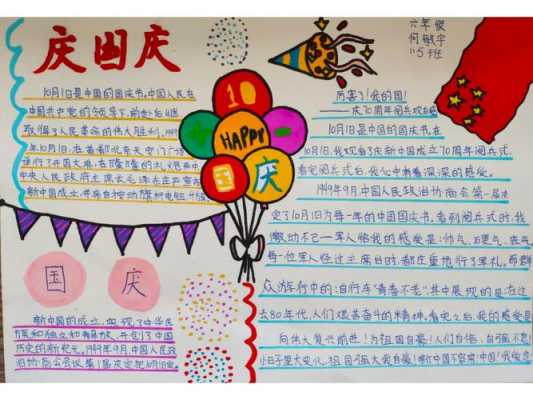 庆国庆
10月1日是中国的国庆节,中国人民在
中国共产党的领导下,前赴后继
取得了人民革命的伟大胜利,1949
年10月1日,在首都北京天安门广场
举行了开国大典,在隆隆的
中央人民政府主席毛泽东庄严宣
新中国成立,并亲自按动
国庆
新中国的成立,实现了中华民
族和独立和解放,开创了中国
历史的新纪元,1949年9月,中国人民政
治协商会议第1届决定把10月1日定
10
HAPPY
国
庆
六年级
何敏宇
115班
厉害了!我的国!
——庆70周年阅兵观后感
10月1日是中国的国庆节在
10月1日,我观看了庆新中国成立70周年阅兵式,
看完阅兵式后,我心中有着深深的感受。
1949年9月,中国人民政治协商会第一届决
定了10月1日为每一年的中国国庆节,看到阅兵式时,我
激动不已一军人给我的感受是:帅气、
每一位军人经过主席台时,都庄重地行了军礼,而群
众游行中的:自行车"青春不老"其中展现的是:在过
去80年代,人们艰苦奋斗的精神,看完之后,我的感受是
向伟大复兴前进!为祖国自豪!人们自信,自强不息!
小日子里大变化,祖国强大我自豪!